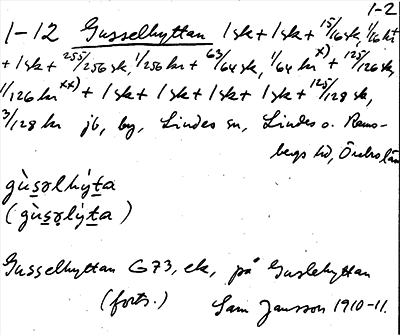 1-2
1-12 Gusselhyttan 1 sk + 1 sk + 15/16 sk, 1/16 kr +
+ 1 sk + 255/256 sk, 1/256 kr + 63/64 sk, 1/64 kr x) + 125/126 sk,
1/126 kr xx) + 1 sk + 1 sk + 1 sk + 1 sk + 125/128 sk,
3/128 kr jb, by, Lindes sn, Lindes o. Rams-
bergs hd, Örebro län
gùs̱ǝlhýṯa
(gùs̱ǝlýṯa)
Gusselhyttan G73, ek, på Guslehyttan
(forts.) Sam Jansson 1910-11.